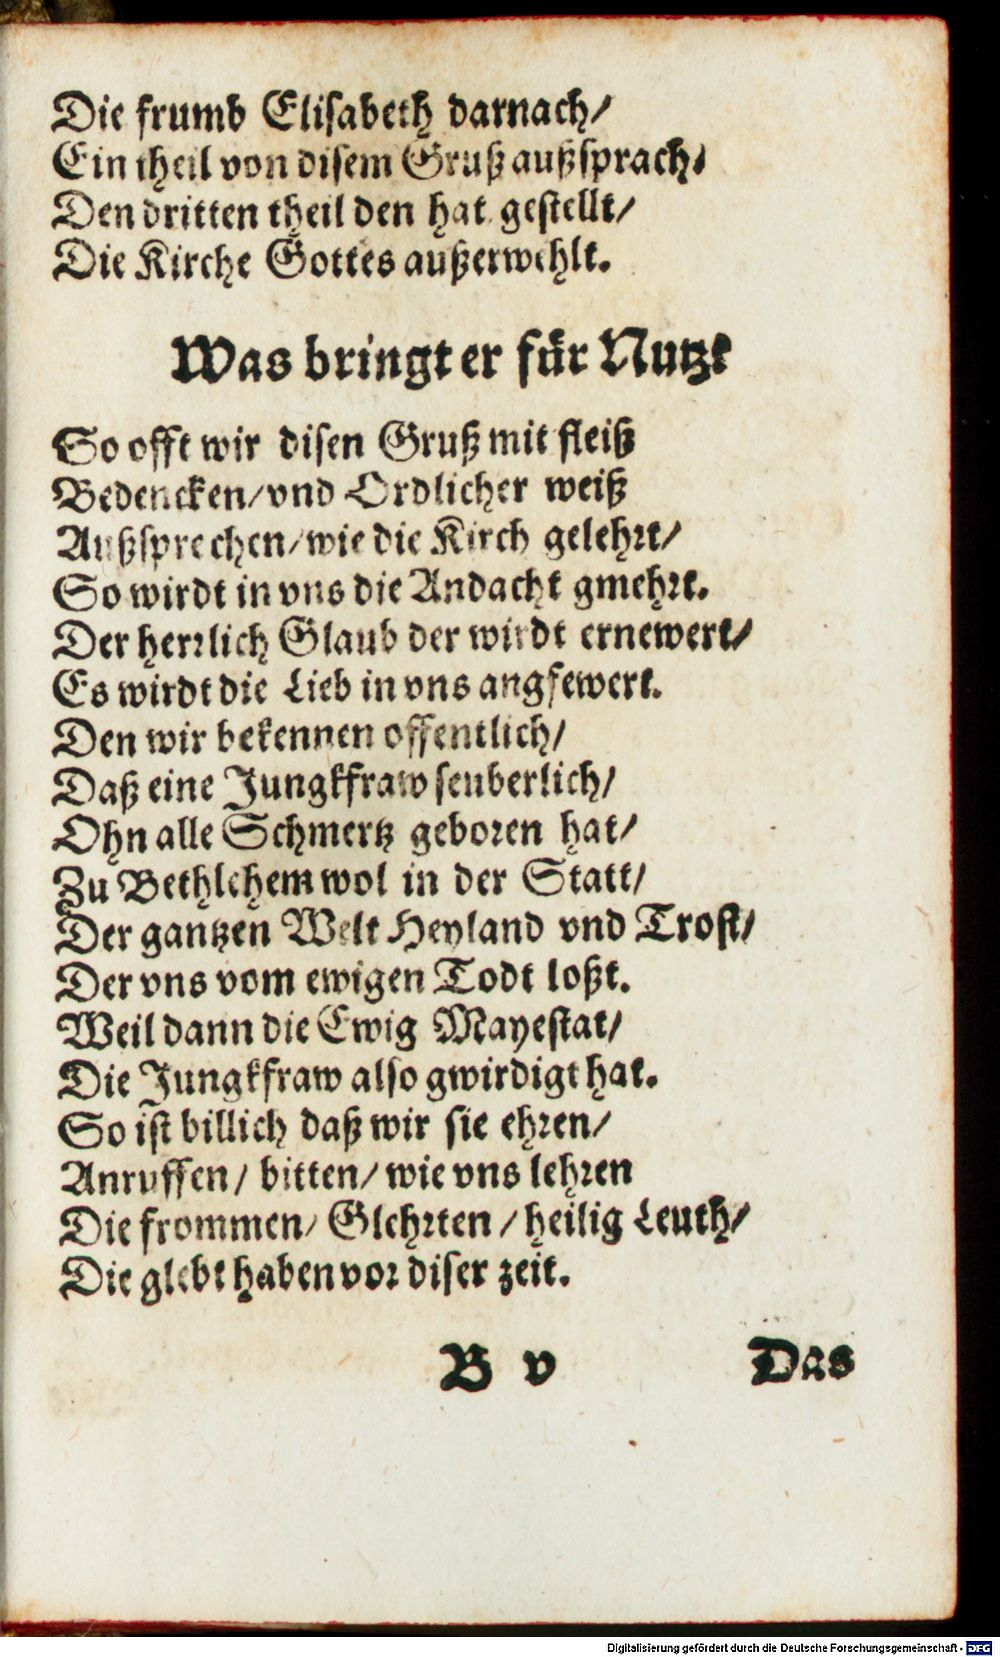 Die frumb Elisabeth darnach/
Ein theil von disem Gruß außsprach/
Den dritten theil den hat gestellt/
Die Kirche Gottes außerwehlt.
Was bringt er für Nutz?
So offt wir disen Gruß mit fleiß
Bedencken/vnd Ordlicher weiß
Außsprechen/wie die Kirch gelehrt/
So wirdt in vns die Andacht gmehrt.
Der herrlich Glaub der wirdt ernewert/
Es wirdt die Lieb in vns angfewert.
Den wir bekennen offentlich/
Daß eine Jungkfraw seuberlich/
Ohn alle Schmertz geboren hat/
Zu Bethlehem wol in der Statt/
Der gantzen Welt Heyland vnd Trost/
Der vns vom ewigen Todt loßt.
Weil dann die Ewig Mayestat/
Die Jungkfraw also gwirdigt hat.
So ist billich daß wir sie ehren/
Anruffen/ bitten/ wie vns lehren
Die frommen/ Glehrten / heilig Leuth/
Die glebt haben vor diser zeit.
B v Das
Digitalisierung gefördert durch die Deutsche Forschungsgemeinschaft - DFG